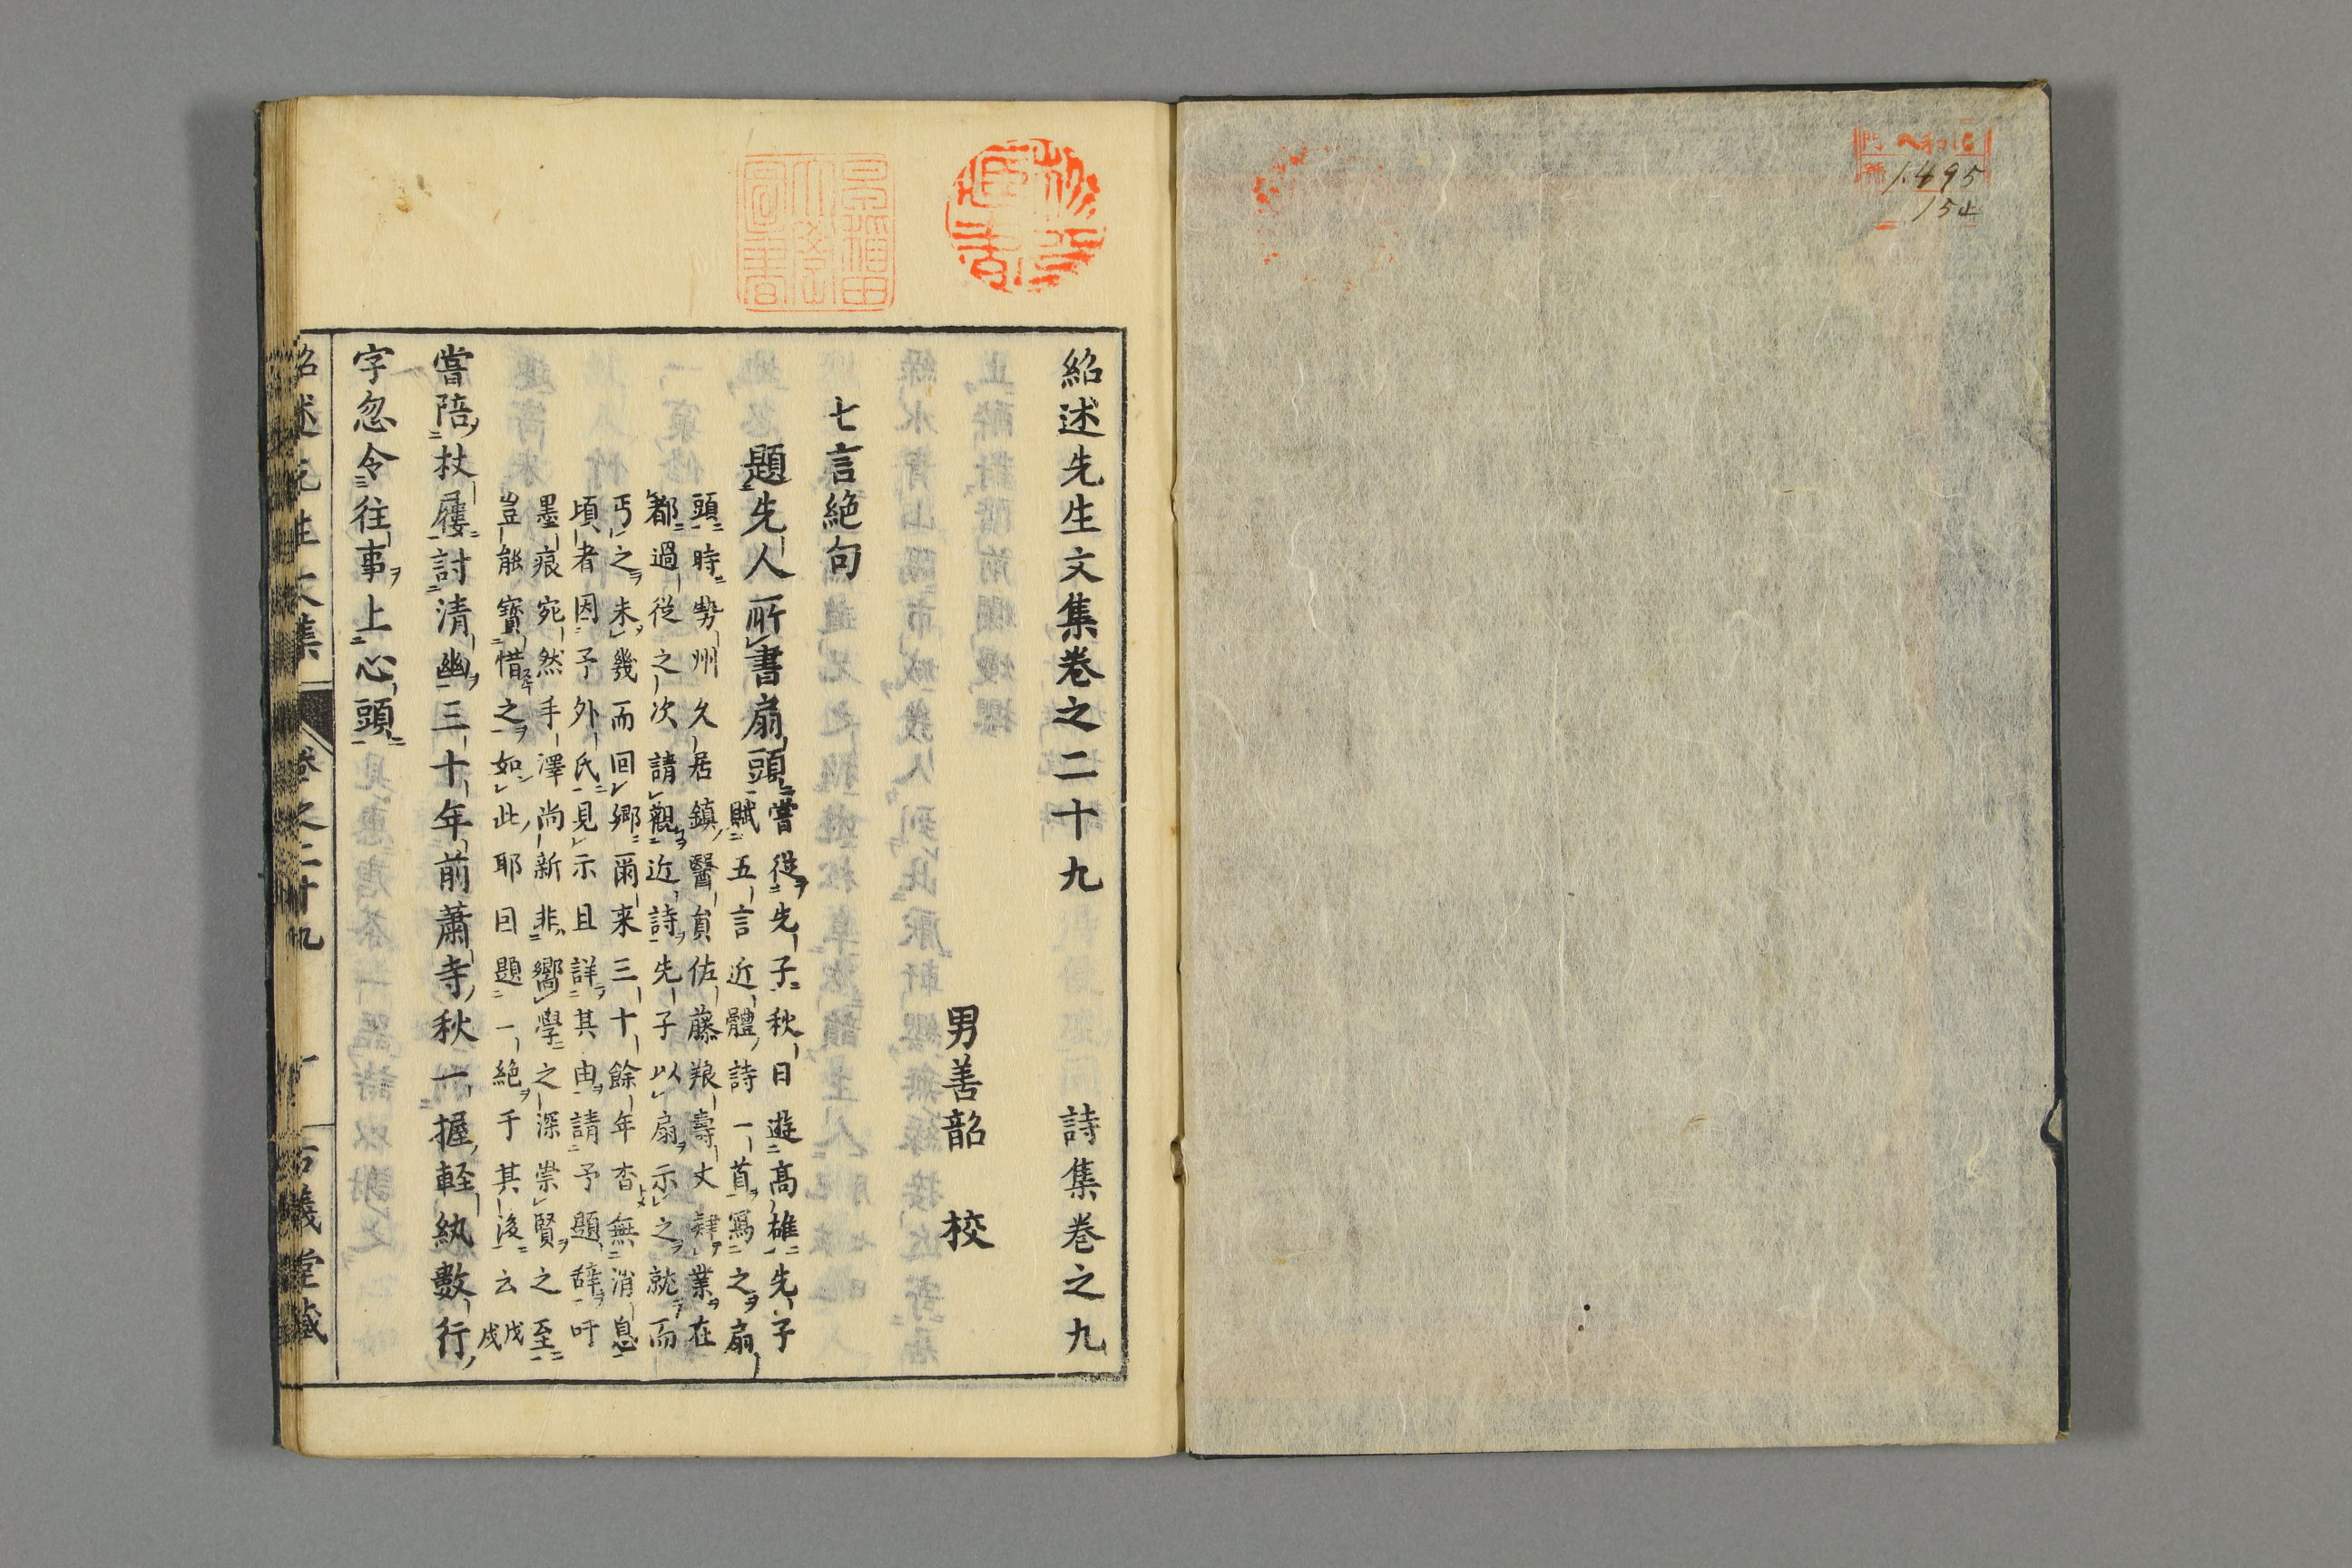 1.495
154
紹述先生文集卷之二十九　詩集卷之九
男善韶　校
七言絶句
題先人所書扇頭
嘗從先子秋日遊高雄先子
賦五言近體詩一首寫之扇
頭時勢州久居鎮醫員佐藤粮壽丈肄業在
都過從之次請觀近詩先子以扇示之就而
丐之未幾而回郷爾来三十餘年杳無消息
頃者因予外氏見示且詳其由請予題辞吁
墨痕宛然手澤尚新非嚮學之深崇賢之至
豈能寳惜之如此耶因題一絶于其後云戊戌
嘗陪杖屨討清幽三十年前蕭寺秋一握輕紈數行
字忽令往事上心頭
紹述先生文集　卷之二十九　古義堂藏